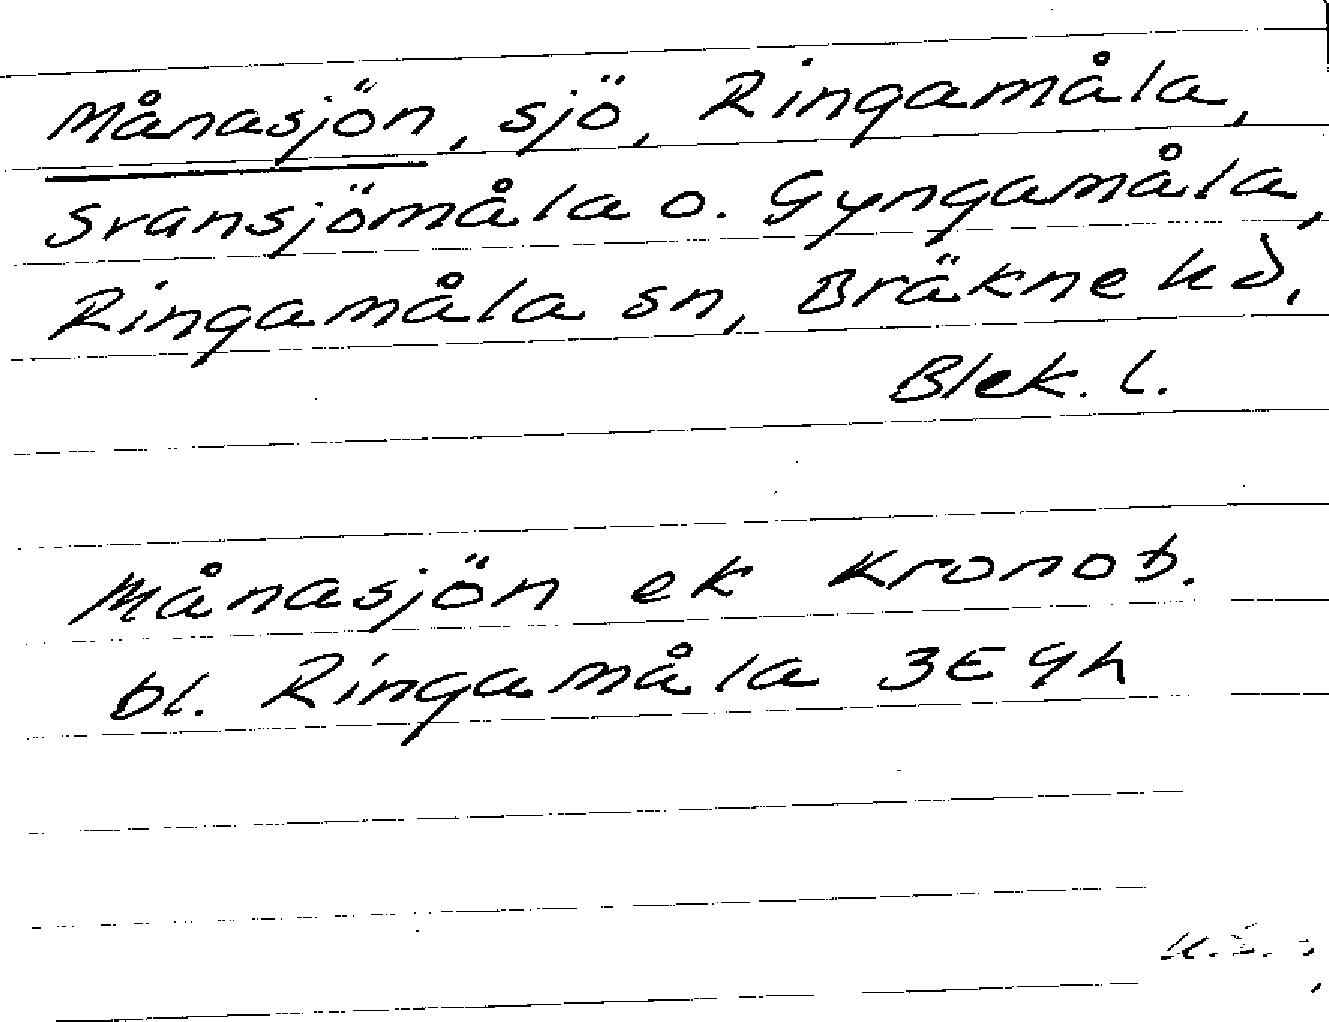 Månasjön, sjö, Ringamåla,
Svansjömåla o. Gyngamåla,
Ringamåla sn, Bräkne hd.
Blek. l.
Månasjön ek Kronob.
bl. Ringamåla 3E9h